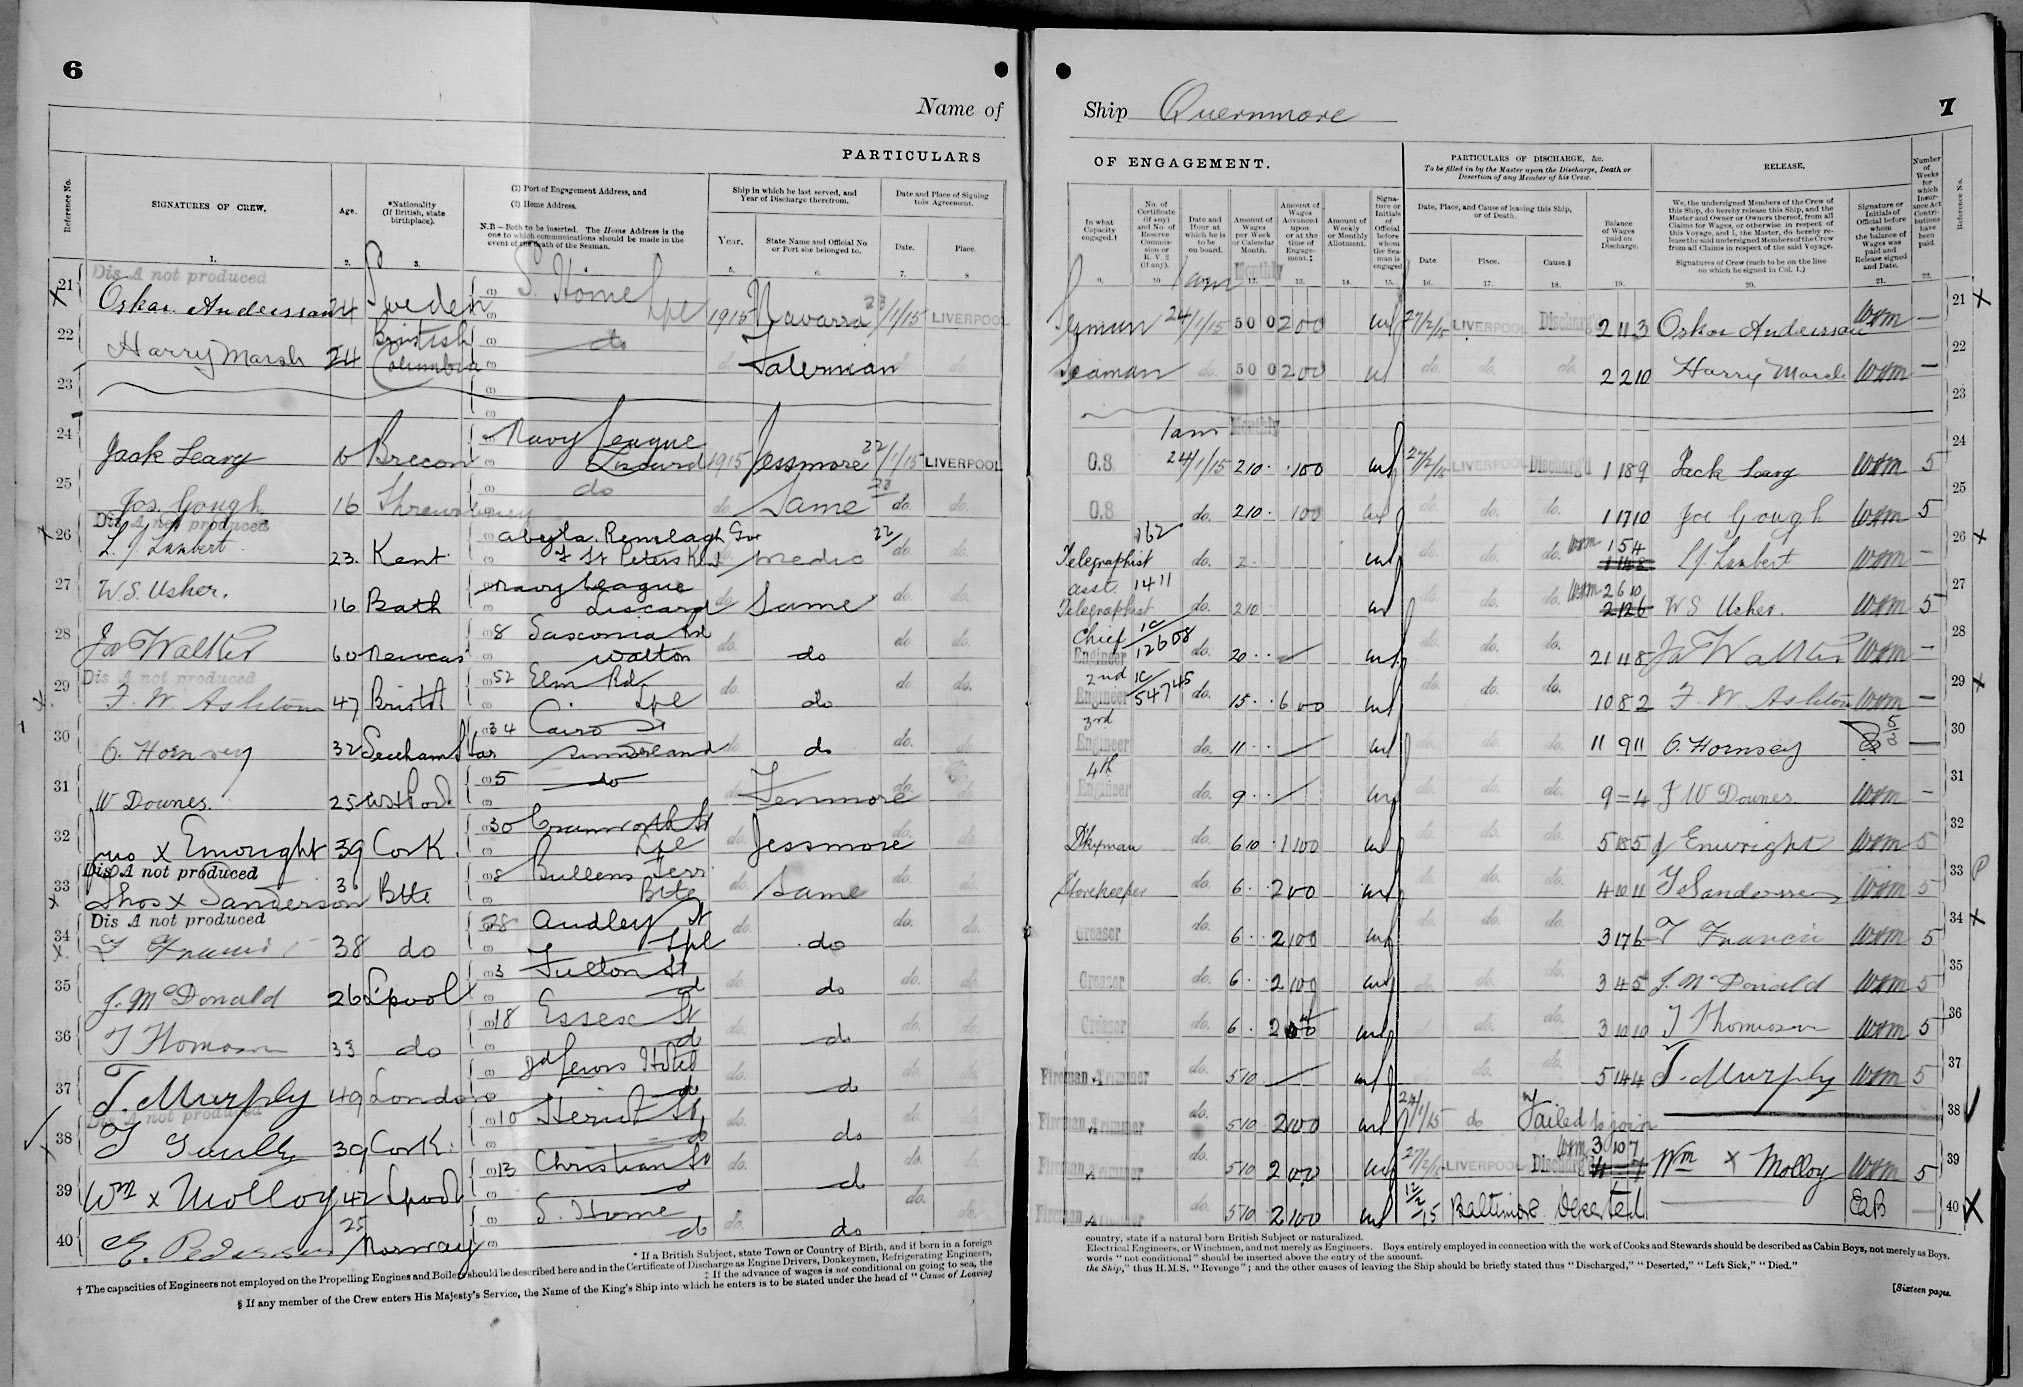 6
Name of
PARTICULARS
Reference No.
SIGNATURES OF CREW.
Age.
*Nationality
(If British, state
birthplace).
(1) Port of Engagement Address, and
(2) Home Address.
N.B—Both to be inserted. The Home Address is the
one to which communications should be made in the
event of the death of the Seaman.
Ship in which he last served, and
Year of Discharge therefrom.
Year.
State Name and Official No.
or Port she belonged to.
Date and Place of Signing
this Agreement.
Date.
Place.
1. 2. 3. 5. 6. 7. 8
Dis A not produced
21 Oskar Andersson 24 Sweden S. Home Lpl 1915 Navarra 23/1/15 LIVERPOOL
22 Harry Marsh 24 British Columbia do do. Valerman do
23
24 Jack Leary Brecon Navy League Liscard 1915 Jessmore 22/1/15 LIVERPOOL
25 Jos. Gough 16 Shrewsbury do do. Same 23 do. do.
Dis A not produced
26 L. J. Lambert 23. Kent St Peters Kent 22 do. do.
27 W.S. Usher. 16 Bath Navy League Liscard do Same do. do.
28 Jas Walker 60 8 Walton do. do do. do.
Dis A not produced
29 F. W. Ashton 47 Bristol 52 Elm Rd. Lpl do. do do do.
30 O. Hornsey 32 Seeham Har 34 Cairo St Sunderland do do do. do.
31 W Downes. 25 5 do Tenmore do. do
32 Jno x Enwright 39 Cork. 30 Cranworth St Lpl do. Jessmore do. do.
Dis A not produced
33 Thos x Sanderson Btte 8 Bullens Terr Btte do. Same do. do.
Dis A not produced
34 T Francis 38 do 28 Audley St Lpl do. do do. do.
35 J. McDonald 26 L'pool 3 Fulton St d do. do do. do.
36 T Thomson 33 do 18 Essex St d do. do do. do.
37 T. Murphy 49 London Hotel do do. do do. do.
Dis A not produced
38 T 39 Cork. 10 St, do do. do do. do.
39 Wm x Molloy 42 Lpool 13 Christian St d do. do do. do.
40 E. Pedersen 25 Norway S. Home do do. do do. do.
* If a British Subject, state Town or Country of Birth, and if born in a foreign
† The capacities of Engineers not employed on the Propelling Engines and Boilers should be described here and in the Certificate of Discharge as Engine Drivers, Donkeymen, Refrigerating Engineers,
‡ If the advance of wages is not conditional on going to sea, the
§ If any member of the Crew enters His Majesty's Service, the Name of the King's Ship into which he enters is to be stated under the head of "Cause of Leaving
Ship Quernmore
7
OF ENGAGEMENT.
PARTICULARS OF DISCHARGE, &c.
To be filled in by the Master upon the Discharge, Death or
Desertion of any Member of his Crew.
RELEASE.
Number
of
Weeks
for
which
Insur-
ance Act
Contri-
butions
have
been
paid.
Reference No.
In what
Capacity
engaged.†
No. of
Certificate
(if any)
and No. of
Reserve
Commis-
sion or
R. V 2
(if any).
Date and
Hour at
which he is
to be
on board.
Amount of
Wages
per Week
or Calendar
Month.
Amount of
Wages
Advanced
upon
or at the
time of
Engage-
ment.‡
Amount of
Weekly
or Monthly
Allotment.
Signa-
ture or
Initials
of
Official
before
whom
the Sea-
man is
engaged
Date, Place, and Cause of leaving this Ship,
or of Death.
Date.
Place.
Cause.§
Balance
of Wages
paid on
Discharge.
We, the undersigned Members of the Crew of
this Ship, do hereby release this Ship, and the
Master and Owner or Owners thereof, from all
Claims for Wages, or otherwise in respect of
this Voyage, and I, the Master, do hereby re-
lease the said undersigned Members of the Crew
from all Claims in respect of the said Voyage.
Signatures of Crew (each to be on the line
on which he signed in Col. 1.)
Signature or
Initials of
Official before
whom
the balance of
Wages was
paid and
Release signed
and Date.
9. 10 12. 13. 14. 15. 16. 17. 18. 19. 20. 21. 22.
1 am Monthly
Seaman 24/1/15 5 0 0 2 00 27/2/15 LIVERPOOL Discharg'd 2 11 3 Oskar Andersson Wrm — 21
Seaman do. 5 0 0 2 00 do. do. do. 2 2 10 Harry Marsh Wrm — 22
23
1 am Monthly
O.S. 24/1/15 2 10 . 1 00 27/2/15 LIVERPOOL Discharg'd 1 18 9 Jack Leary Wrm 5 24
O.S do. 2 10 . 1 00 do. do. do. 1 17 10 Joe Gough Wrm 5 25
Telegraphist 162 do. 2 do. do. do. Wrm 1 5 4 L J. Lambert Wrm — 26
asst. Telegraphist 1411 do. 2 10 do. do. do. Wrm 2 6 10 2 12 6 W S Usher. Wrm 5 27
Chief Engineer 1C/12608 do. 20 . . do. do. do. 21 11 8 Jas Walker Wrm — 28
2nd Engineer 1C/54745 do. 15 . . 6 00 do. do. do. 10 8 2 F. W. Ashton Wrm — 29
3rd Engineer do. 11 . . do. do. do. 11 9 11 O. Hornsey — 30
4th Engineer do. 9 . . do. do. do. 9 = 4 J W Downes. Wrm — 31
D'kyman do. 6 10 . 1 00 do. do. do. 5 18 5 J Enwright Wrm 5 32
Storekeeper do. 6 . . 2 00 do. do. do. 4 10 11 T Sanderson Wrm 5 33
Greaser do. 6 . . 2 00 do. do. do. 3 17 6 T Francis Wrm 5 34
Greaser do. 6 . . 2 00 do. do. do. 3 4 5 J. McDonald Wrm 5 35
Greaser do. 6 . 2 00 do. do. do. 3 10 10 T Thomson Wrm 5 36
Fireman & Trimmer do. 5 10 do. do. do. 5 14 4 T. Murphy Wrm 5 37
Fireman & Trimmer do. 5 10 2 00 24/1/15 do Failed to join 38
Fireman & Trimmer do. 5 10 2 00 27/2/15 LIVERPOOL Discharg'd Wrm 3 10 7 Wm x Molloy Wrm 5 39
Fireman & Trimmer do. 5 10 2 00 12/2/15 Baltimore Deserted EAB — 40
country, state if a natural born British Subject or naturalized.
Electrical Engineers, or Winchmen, and not merely as Engineers. Boys entirely employed in connection with the work of Cooks and Stewards should be described as Cabin Boys, not merely as Boys.
words "not conditional" should be inserted above the entry of the amount.
the Ship," thus H.M.S. "Revenge"; and the other causes of leaving the Ship should be briefly stated thus "Discharged," "Deserted," "Left Sick," "Died."
[Sixteen pages.